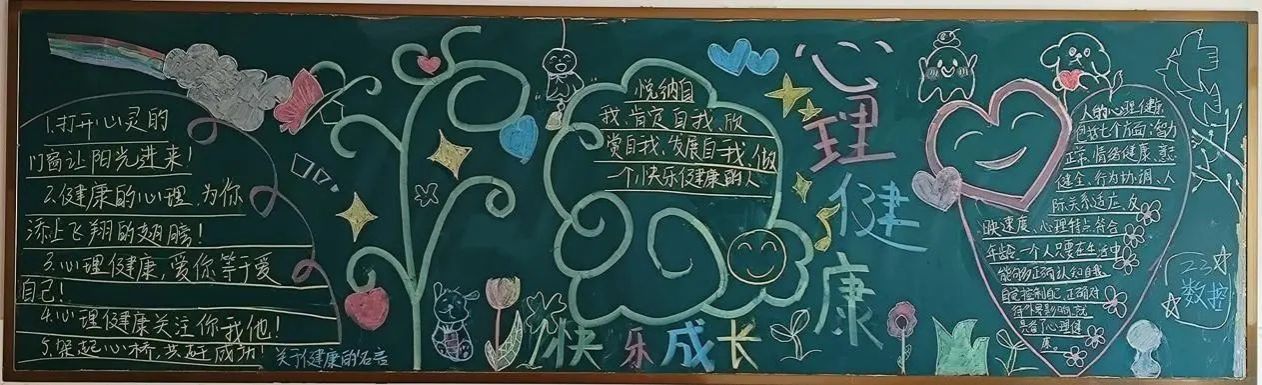 1.打开心灵的
门窗让阳光进来!
2.健康的心理,为你
添上飞翔的翅膀!
3.心理健康,爱你等于爱
自己!
4.心理健康关注你我他!
5.架起心桥,共研成功!
关于健康的名言
悦纳自
我、肯定自我、欣
赏自我、发展自我、做
一个快乐健康的人
快乐成长
心理健康
人的心理健康
包括七个方面:智力
正常、情绪健康、意志
健全、行为协调、人
际关系适应、反
映速度、心理特点符合
年龄。一个人只要在生活中
能够正确认知自我
自觉控制自己,正确对
待外界影响,就
具备了心理健
康。
23
数控